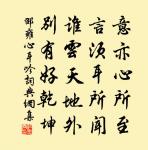 意亦心所至
言須耳所聞
誰雲天地外
別有好乾坤
邵雍心耳吟詞典網集